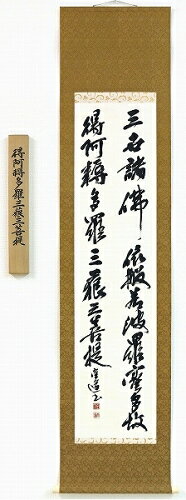 三世諸佛依般若波羅蜜多故
得阿耨多羅三藐三菩提
得阿耨多羅三藐三菩提